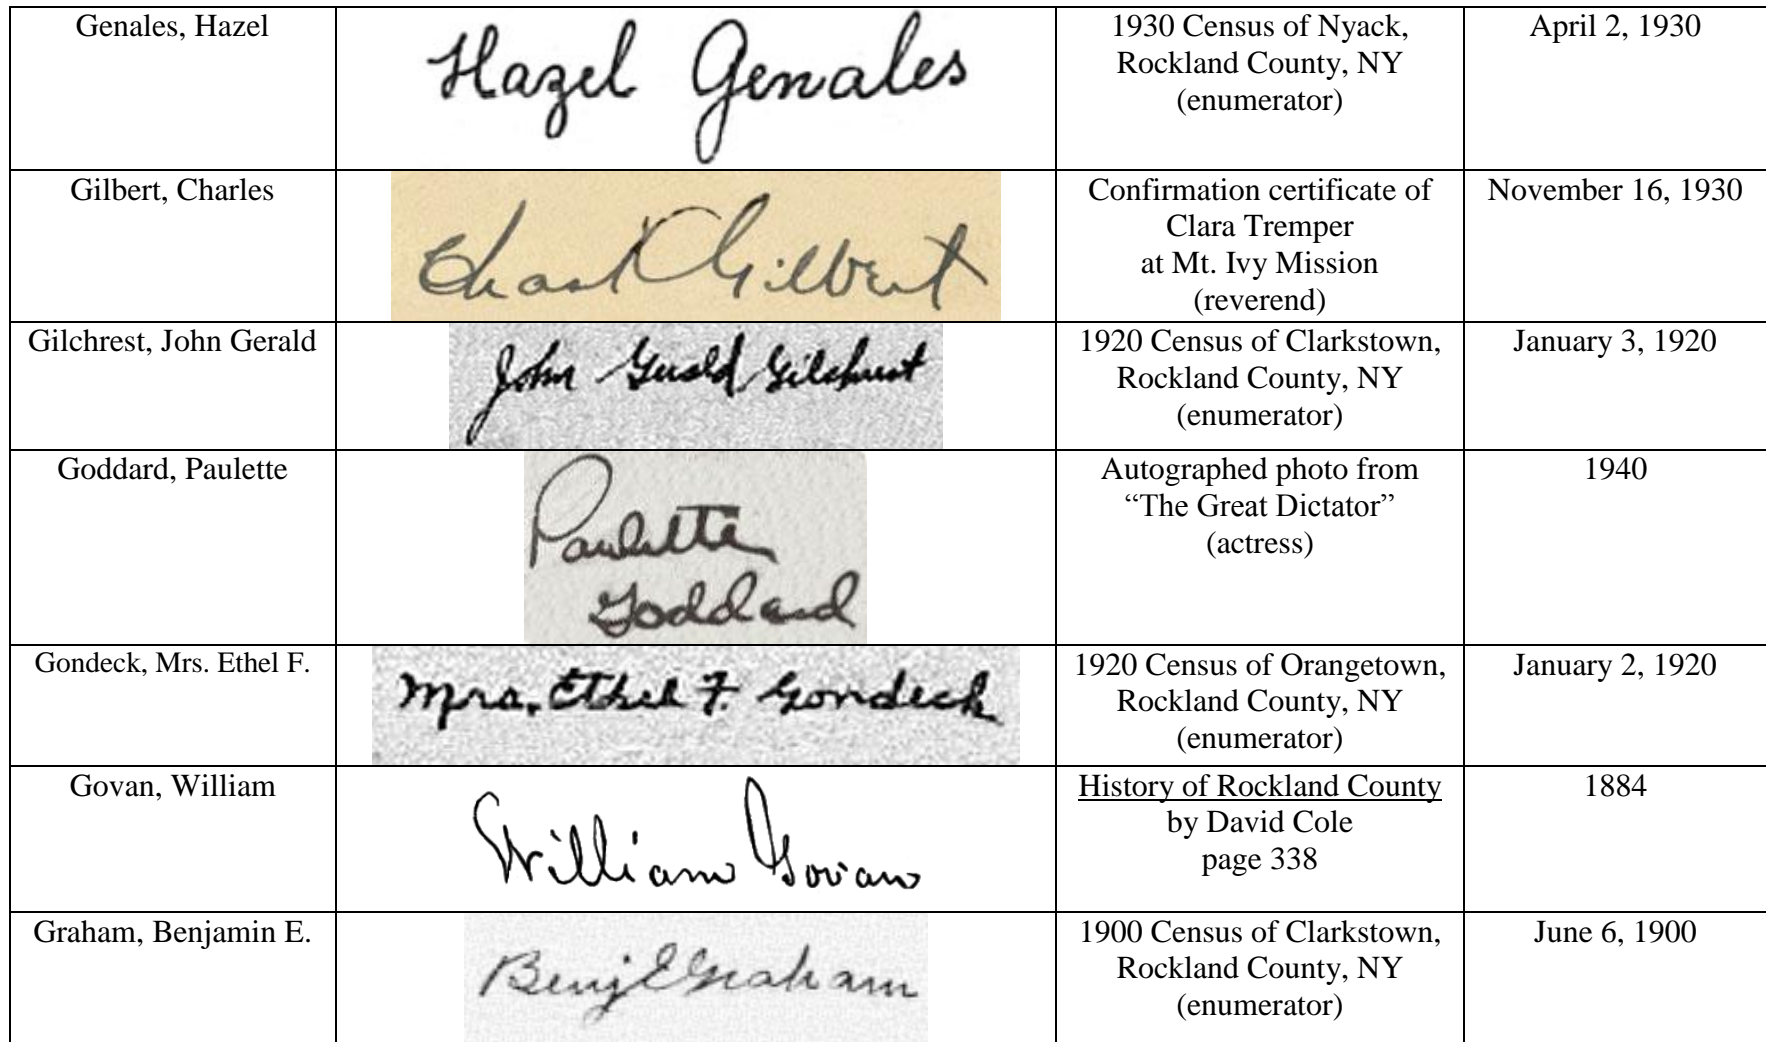 Genales, Hazel
Hazel Genales
1930 Census of Nyack,
Rockland County, NY
(enumerator)
April 2, 1930
Gilbert, Charles
Chas Gilbert
Confirmation certificate of
Clara Tremper
at Mt. Ivy Mission
(reverend)
November 16, 1930
Gilchrest, John Gerald
John Gerald Gilchrest
1920 Census of Clarkstown,
Rockland County, NY
(enumerator)
January 3, 1920
Goddard, Paulette
Paulette
Goddard
Autographed photo from
“The Great Dictator”
(actress)
1940
Gondeck, Mrs. Ethel F.
Mrs. Ethel F. Gondeck
1920 Census of Orangetown,
Rockland County, NY
(enumerator)
January 2, 1920
Govan, William
William Govan
History of Rockland County
by David Cole
page 338
1884
Graham, Benjamin E.
Benj E Graham
1900 Census of Clarkstown,
Rockland County, NY
(enumerator)
June 6, 1900